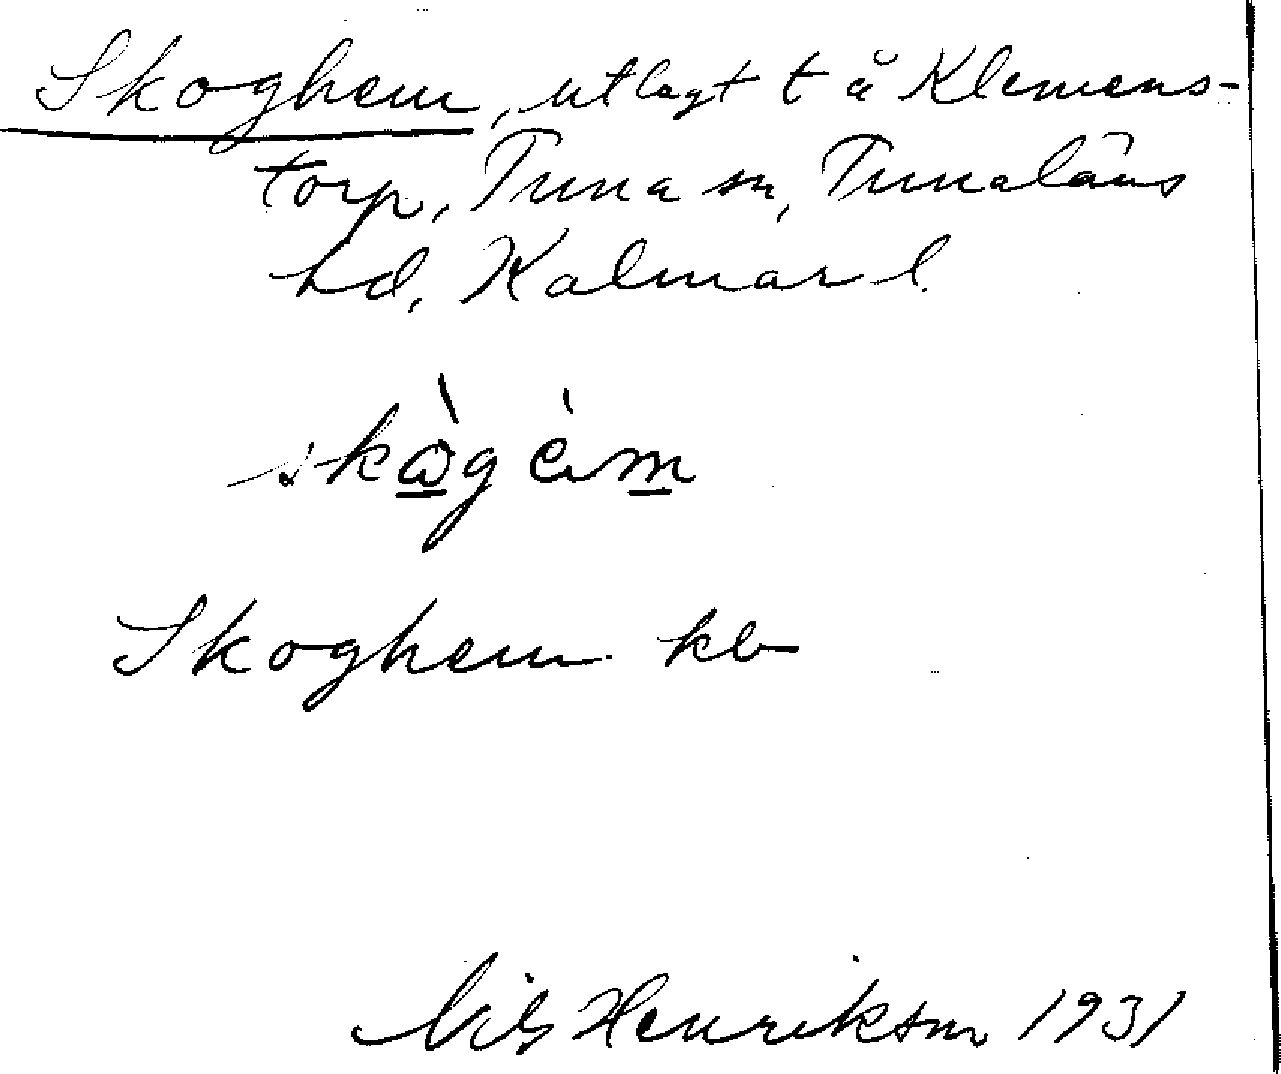 Skoghem, utlagt t å Klemens-
torp, Tuna sn, Tunaläns
hd, Kalmar l.
skògèm
Skoghem kb
Nils Henrikson 1931